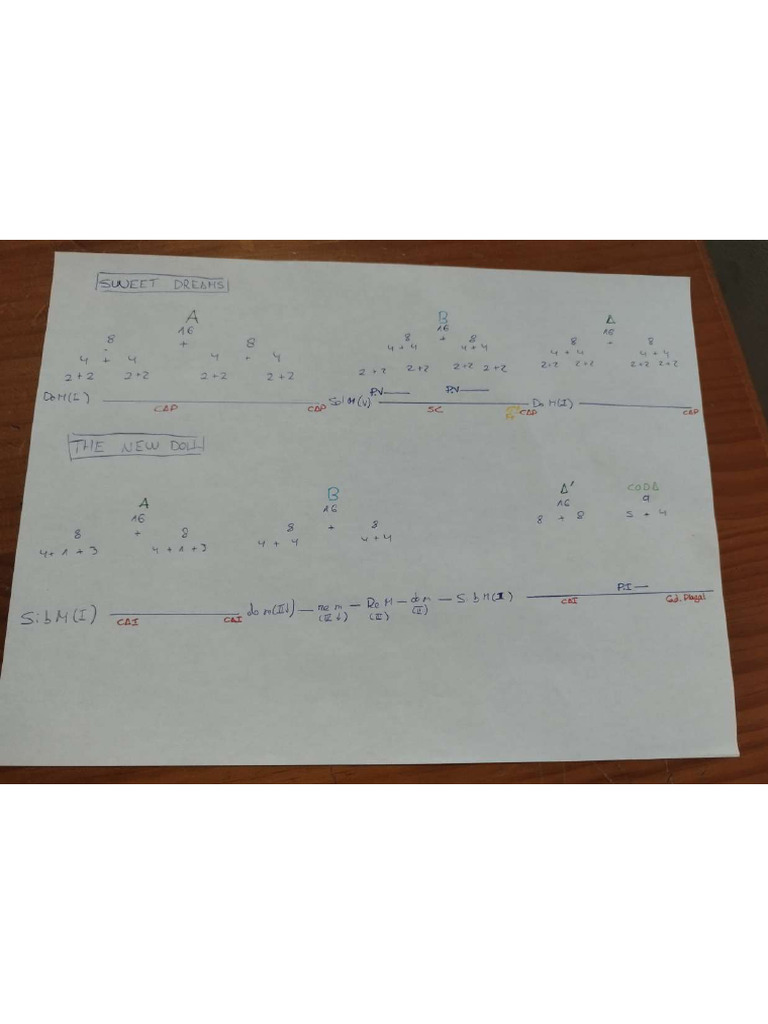 SWEET DREAMS
A B A
16 16 16
8 + 8 8 + 8 8 + 8
4 + 4 4 4 4 + 4 4 + 4 4 + 4 4 + 4
2+2 2+2 2+2 2+2 2+2 2+2 2+2 2+2 2+2 2+2 2+2 2+2
P.V P.V
Do M(I) Sol M(V) Do M(I)
CAP CAP SC CAP CAP
THE NEW DOLL
A B A' CODA
16 16 16 9
8 + 8 8 + 8 8 + 8 5 + 4
4+1+3 4+1+3 4+4 4+4
P.I
Sib M(I) do m(II↓) — — Do M — do m — Sib M(I)
(II) (II)
CAI CAI CAI Cad. Plagal